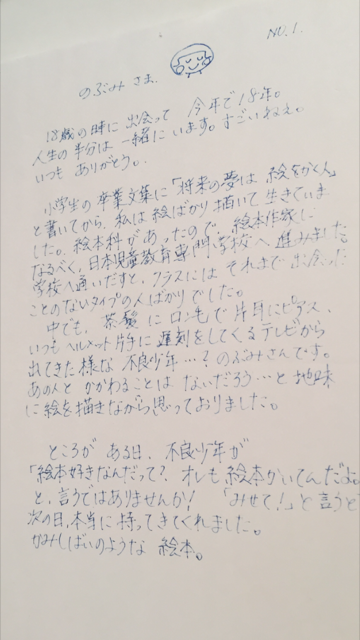 NO.1.
のぶみ さま.
18歳の時に 出会って 今年で18年。
人生の半分は 一緒にいます。すごいねぇ。
いつも ありがとう。
小学生の 卒業文集に「将来の夢は 絵をかく人」
と書いてから、私は絵ばかり描いて生きていま
した。絵本科が あったので、絵本作家に
なるべく、日本児童教育専門学校へ進みました。
学校へ通いだすと、クラスには それまで出会った
ことのないタイプの人ばかりでした。
中でも、茶髪に ロンもで片耳にピアス、
いつもヘルメット片手に 遅刻をしてくるテレビから
出てきた様な 不良少年…? のぶみさんです。
あの人と かかわることは ないだろう…と 地味
に絵を描きながら思っておりました。
ところが ある日、不良少年が
「絵本好きなんだって? オレも絵本かいてんだよ。
と、言うではありませんか! 「みせて!」と言うと
次の日、本当に持ってきてくれました。
かみしばいのような 絵本。